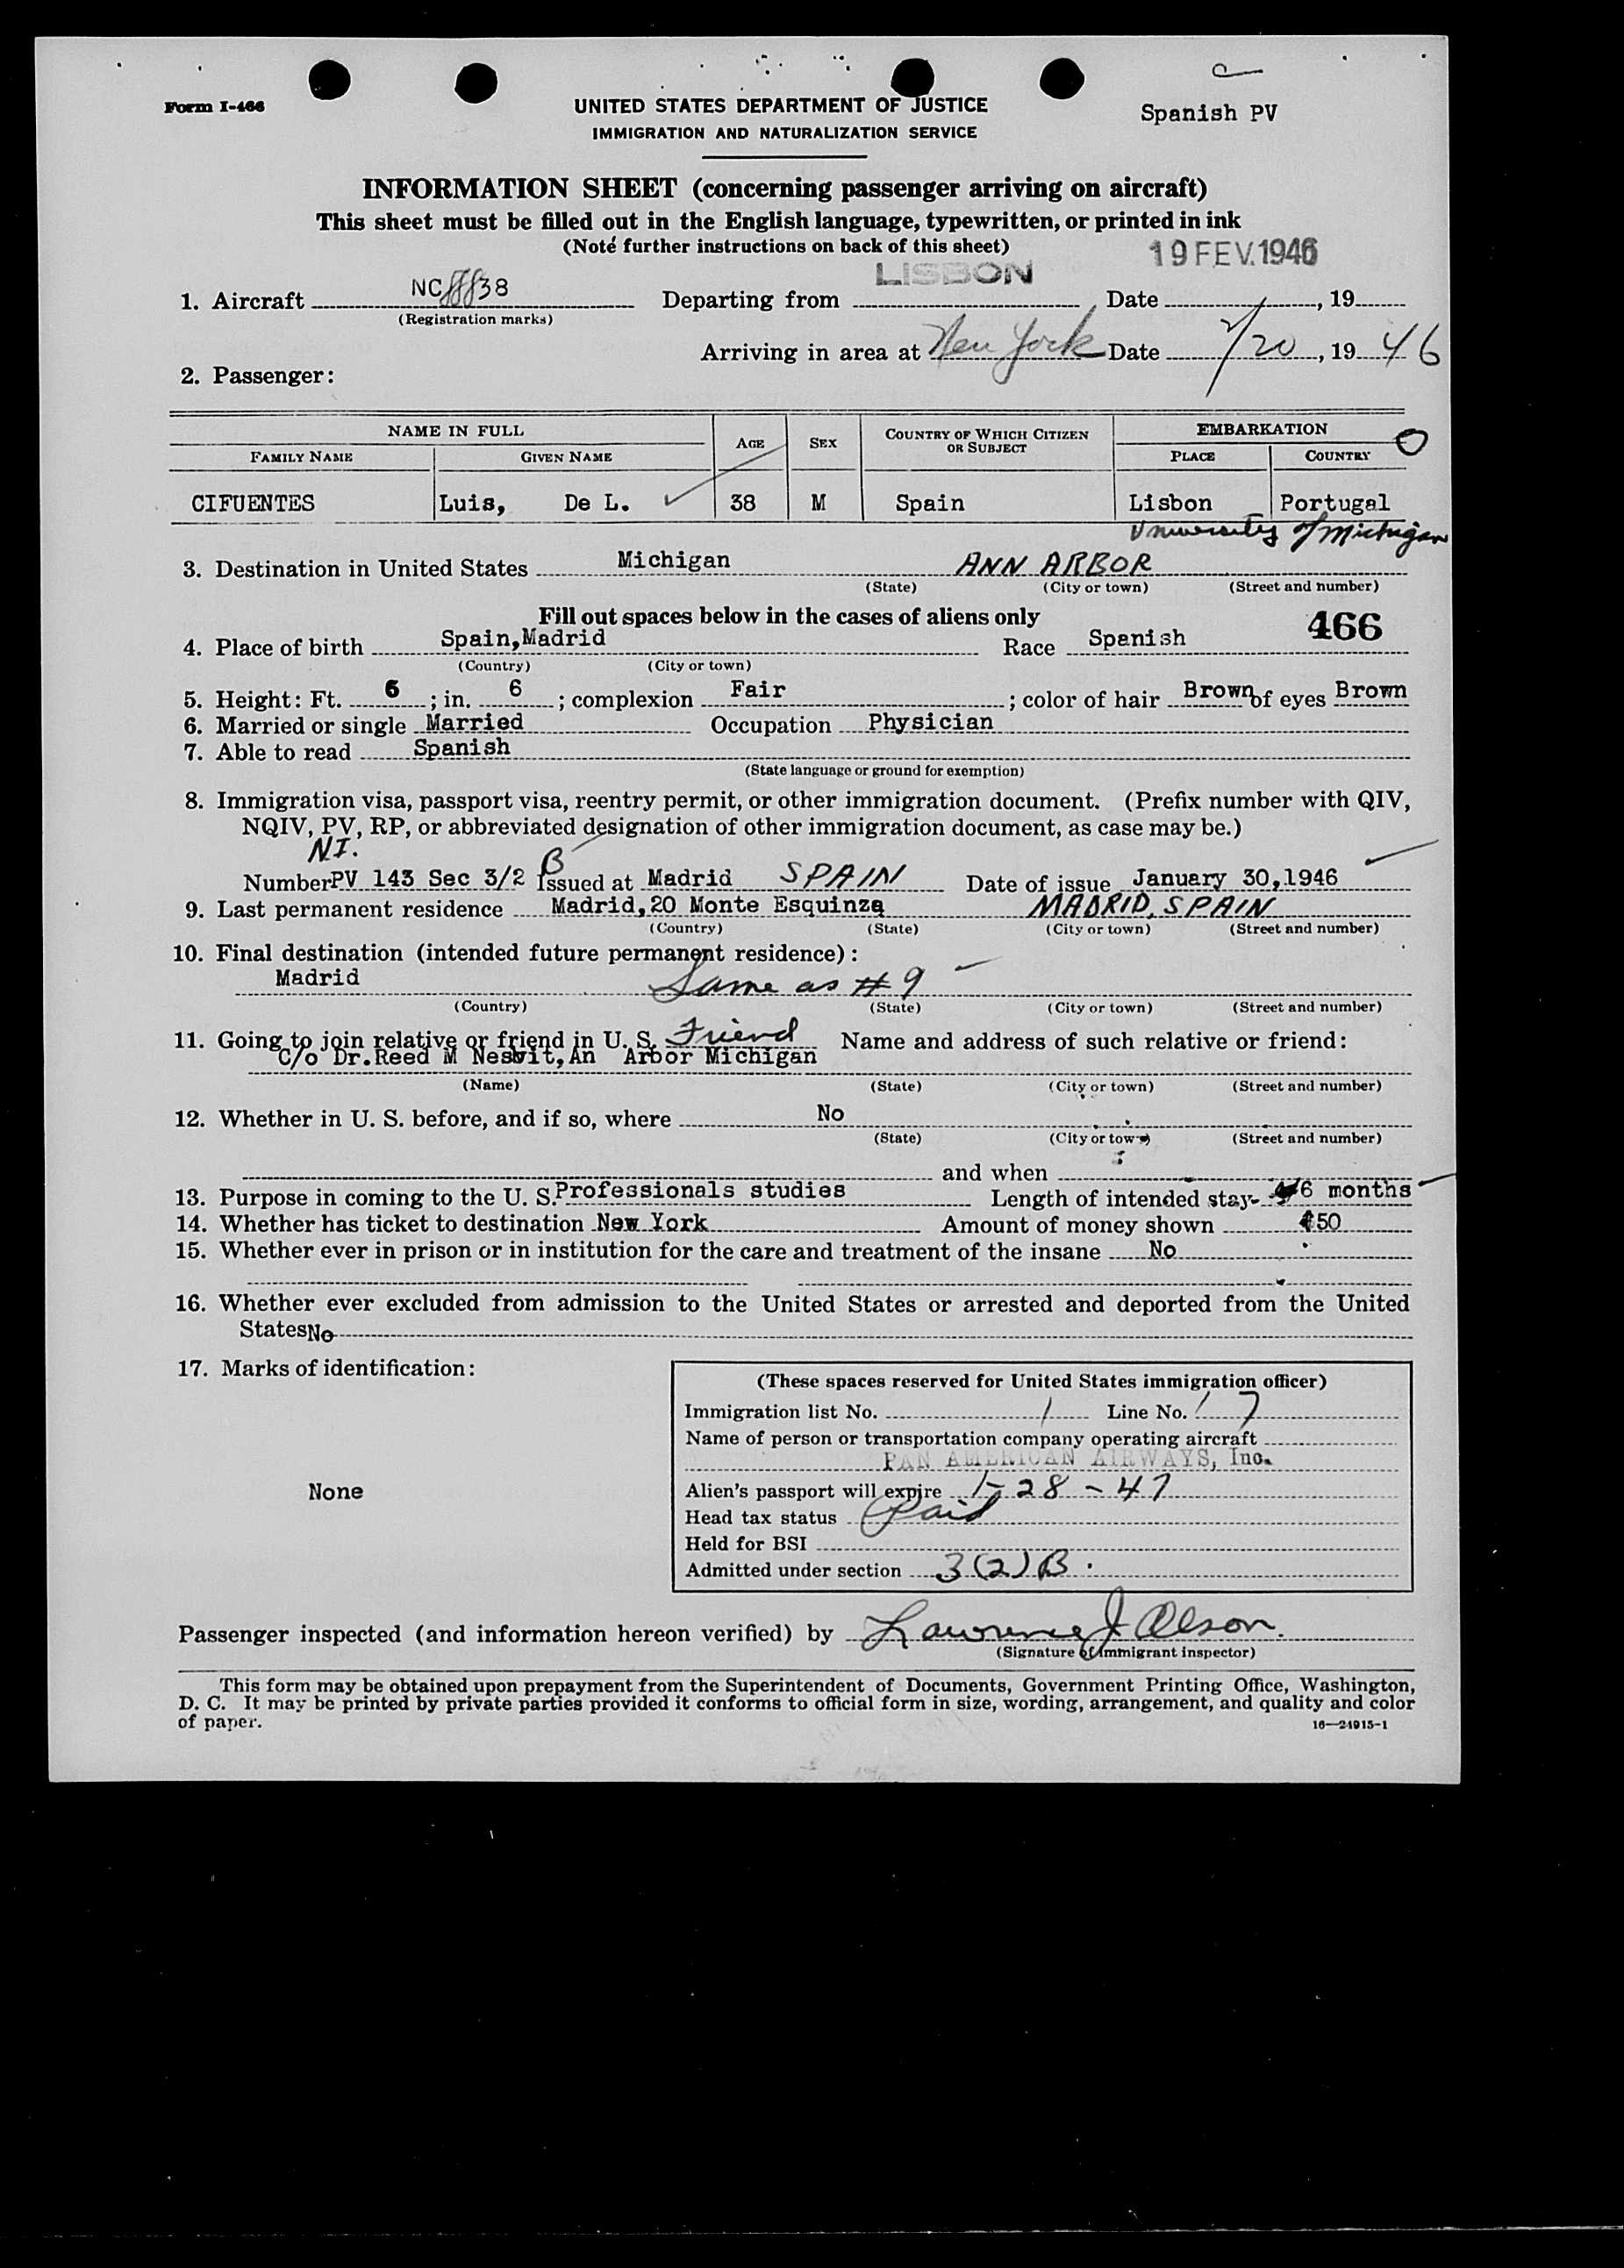 C
Form I-466
UNITED STATES DEPARTMENT OF JUSTICE
Spanish PV
IMMIGRATION AND NATURALIZATION SERVICE
INFORMATION SHEET (concerning passenger arriving on aircraft)
This sheet must be filled out in the English language, typewritten, or printed in ink
(Note further instructions on back of this sheet)
19 FEV. 1946
1. Aircraft NC 8838 Departing from LISBON, Date , 19
(Registration marks)
Arriving in area at New York Date 2/20, 19 46
2. Passenger:
NAME IN FULL AGE SEX COUNTRY OF WHICH CITIZEN OR SUBJECT EMBARKATION
FAMILY NAME GIVEN NAME PLACE COUNTRY
CIFUENTES Luis, De L. 38 M Spain Lisbon Portugal
University of Michigan
3. Destination in United States Michigan ANN ARBOR
(State) (City or town) (Street and number)
Fill out spaces below in the cases of aliens only
466
4. Place of birth Spain,Madrid Race Spanish
(Country) (City or town)
5. Height: Ft. 6 ; in. 6 ; complexion Fair ; color of hair Brown of eyes Brown
6. Married or single Married Occupation Physician
7. Able to read Spanish
(State language or ground for exemption)
8. Immigration visa, passport visa, reentry permit, or other immigration document. (Prefix number with QIV,
NQIV, PV, RP, or abbreviated designation of other immigration document, as case may be.)
NI.
Number PV 143 Sec 3/2 B Issued at Madrid SPAIN Date of issue January 30,1946
9. Last permanent residence Madrid,20 Monte Esquinza MADRID, SPAIN
(Country) (State) (City or town) (Street and number)
10. Final destination (intended future permanent residence):
Madrid Same as #9
(Country) (State) (City or town) (Street and number)
11. Going to join relative or friend in U. S. Friend Name and address of such relative or friend:
C/o Dr.Reed M Nesvit,An Arbor Michigan
(Name) (State) (City or town) (Street and number)
12. Whether in U. S. before, and if so, where No
(State) (City or town) (Street and number)
and when
13. Purpose in coming to the U. S. Professionals studies Length of intended stay- 6 months
14. Whether has ticket to destination New York Amount of money shown 50
15. Whether ever in prison or in institution for the care and treatment of the insane No
16. Whether ever excluded from admission to the United States or arrested and deported from the United
States No
17. Marks of identification:
None
(These spaces reserved for United States immigration officer)
Immigration list No. 1 Line No. 7
Name of person or transportation company operating aircraft
PAN AMERICAN AIRWAYS, Inc.
Alien's passport will expire 1-28-47
Head tax status Paid
Held for BSI
Admitted under section 3(2)B.
Passenger inspected (and information hereon verified) by Lawrence J Olson.
(Signature of immigrant inspector)
This form may be obtained upon prepayment from the Superintendent of Documents, Government Printing Office, Washington,
D. C. It may be printed by private parties provided it conforms to official form in size, wording, arrangement, and quality and color
of paper.
16—24915-1